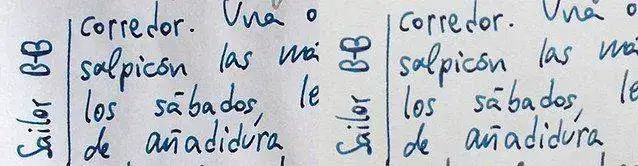 Sailor B-B
corredor. Una o
salpicón las má
los sábados, le
de añadidura
Sailor B-B
corredor. Una o
salpicón las má
los sábados, le
de añadidura